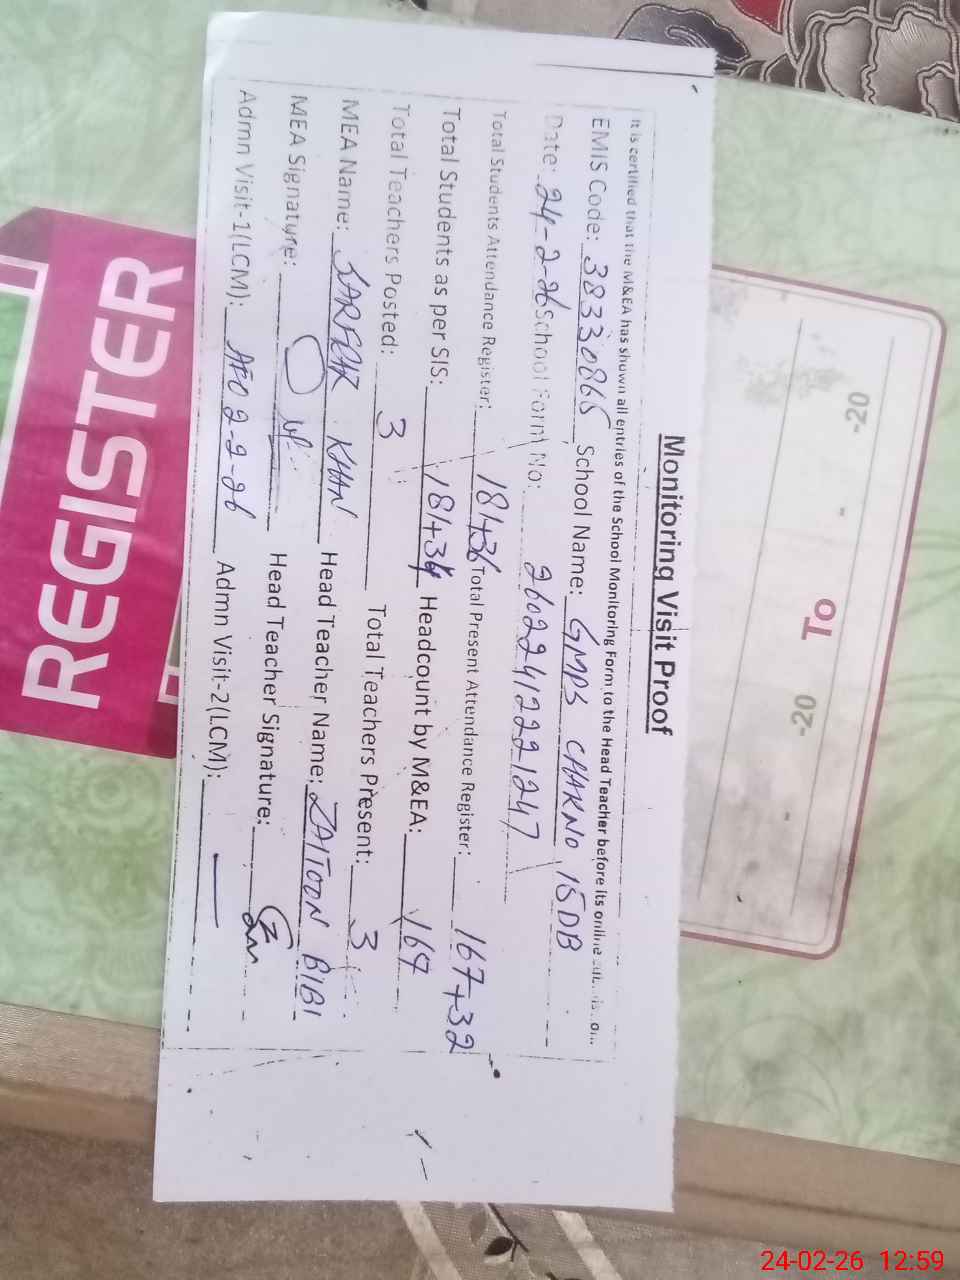 Monitoring Visit Proof
It is certified that the M&EA has shown all entries of the School Monitoring Form to the Head Teacher before its online
EMIS Code: 38330865 School Name: GMPS CHAKNO 15DB
Date: 24-2-26 School Form No: 2602241221247
Total Students Attendance Register: 181+36 Total Present Attendance Register: 167+32
Total Students as per SIS: 181+34 Headcount by M&EA: 167
Total Teachers Posted: 3 Total Teachers Present: 3
MEA Name: SARFRAZ KHAN Head Teacher Name: ZAITOON BIBI
MEA Signature: Head Teacher Signature:
Admn Visit-1(LCM): AEO 2-2-26 Admn Visit-2(LCM): —
REGISTER
To
-20-
-20-
24-02-26 12:59